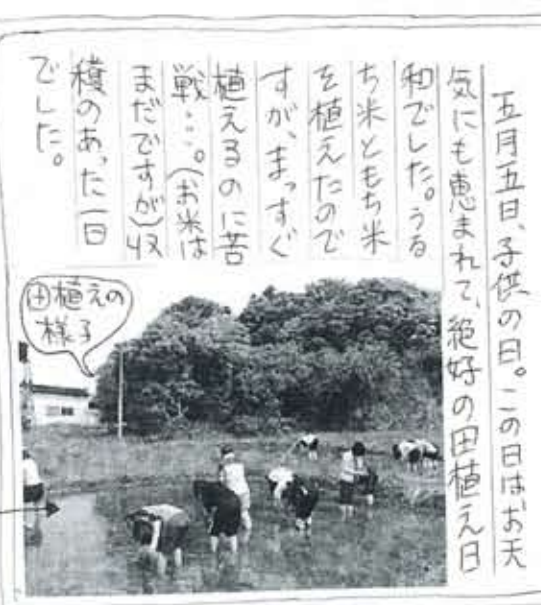 五月五日、子供の日。この日はお天
気にも恵まれて、絶好の田植え日
和でした。うる
ち米ともち米
を植えたので
すが、まっすぐ
植えるのに苦
戦…。(お米は
まだですが)収
穫のあった一日
でした。
田植えの
様子